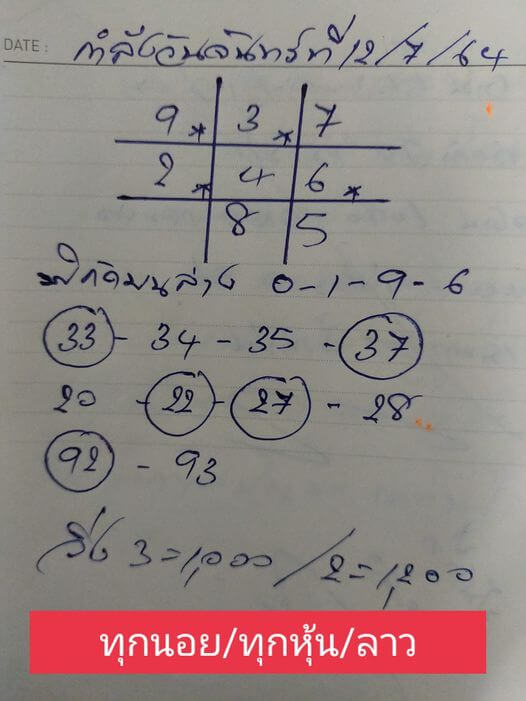 DATE :
กำลังวันจันทร์ที่ 12/7/64
9 * 3 * 7
2 * 4 6 *
8 5
บนล่าง 0-1-9-6
33 - 34 - 35 - 37
20 - 22 - 27 - 28
92 - 93
วิ่ง 3=1,000 / 2=1,200
ทุกนอย/ทุกหุ้น/ลาว